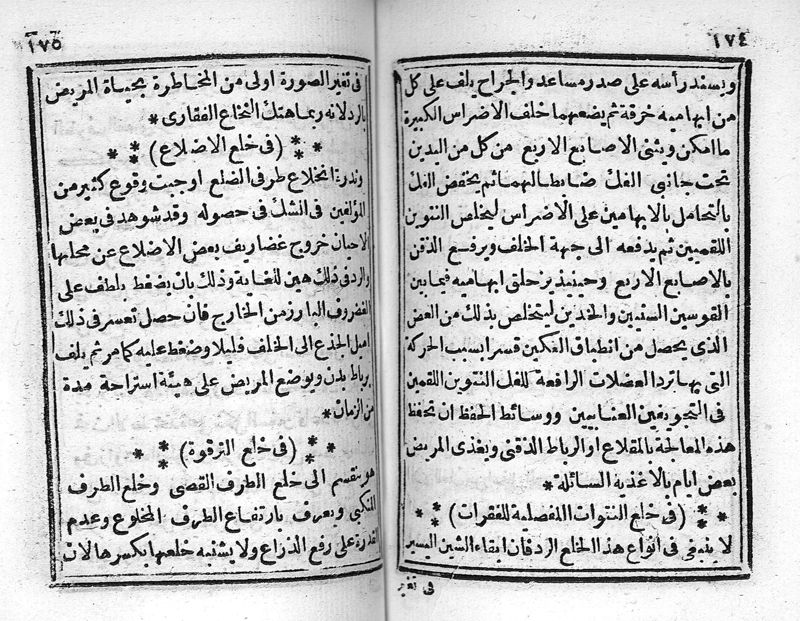 ١٧٤
ويسند رأسه على صدر مساعد والجراح يلف على كل
من ابهاميه خرقة ثم يضعهما خلف الاضراس الكبيرة
ما امكن ويثنى الاصابع الاربع من كل من اليدين
تحت جانبى الفك ضابطا لهما ثم يخفض الفك
بالتحامل بالابهامين على الاضراس ليخلص النتوين
اللقميين ثم يدفعه الى جهة الخلف ويرفع الذقن
بالاصابع الاربع وحينئذ يزحلق ابهاميه فيما بين
القوسين السنيين والخدين ليتخلص بذلك من العض
الذى يحصل من انطباق الفكين قسرا بسبب الحركة
التى بها ترد العضلات الرافعة للفك النتوين اللقمين
فى التجويفين العنابيين ووسائط الحفظ ان تحفظ
هذه المعالجة بالمقلاع او الرباط الذقنى ويغذى المريض
بعض ايام بالاغذية السائلة *
(فى خلع النتوات المفصلية للفقرات)
لا ينبغى فى انواع هذا الخلع الرد فان ابقاء الشين اليسير
فى تغير
١٧٥
فى تغير الصورة اولى من المخاطرة بحياة المريض
بالرد لانه ربما هتك النخاع الفقارى *
(فى خلع الاضلاع)
وندرة انخلاع طرفى الضلع اوجبت وقوع كثير من
المؤلفين فى الشك فى حصوله وقد شوهد فى بعض
الاحيان خروج غضاريف بعض الاضلاع عن محلها
والرد فى ذلك هين للغاية وذلك بان يضغط بلطف على
الغضروف البارز من الخارج فان حصل تعسر فى ذلك
اميل الجذع الى الخلف قليلا وضغط عليه كما مر ثم يلف
برباط بدن ويوضع المريض على هيئة استراحة مدة
من الزمان *
(فى خلع الترقوة)
هو ينقسم الى خلع الطرف القصى وخلع الطرف
المنكبى ويعرف بارتفاع الطرف المخلوع وعدم
القدرة على رفع الذراع ولا يشتبه خلعها بكسرها لان